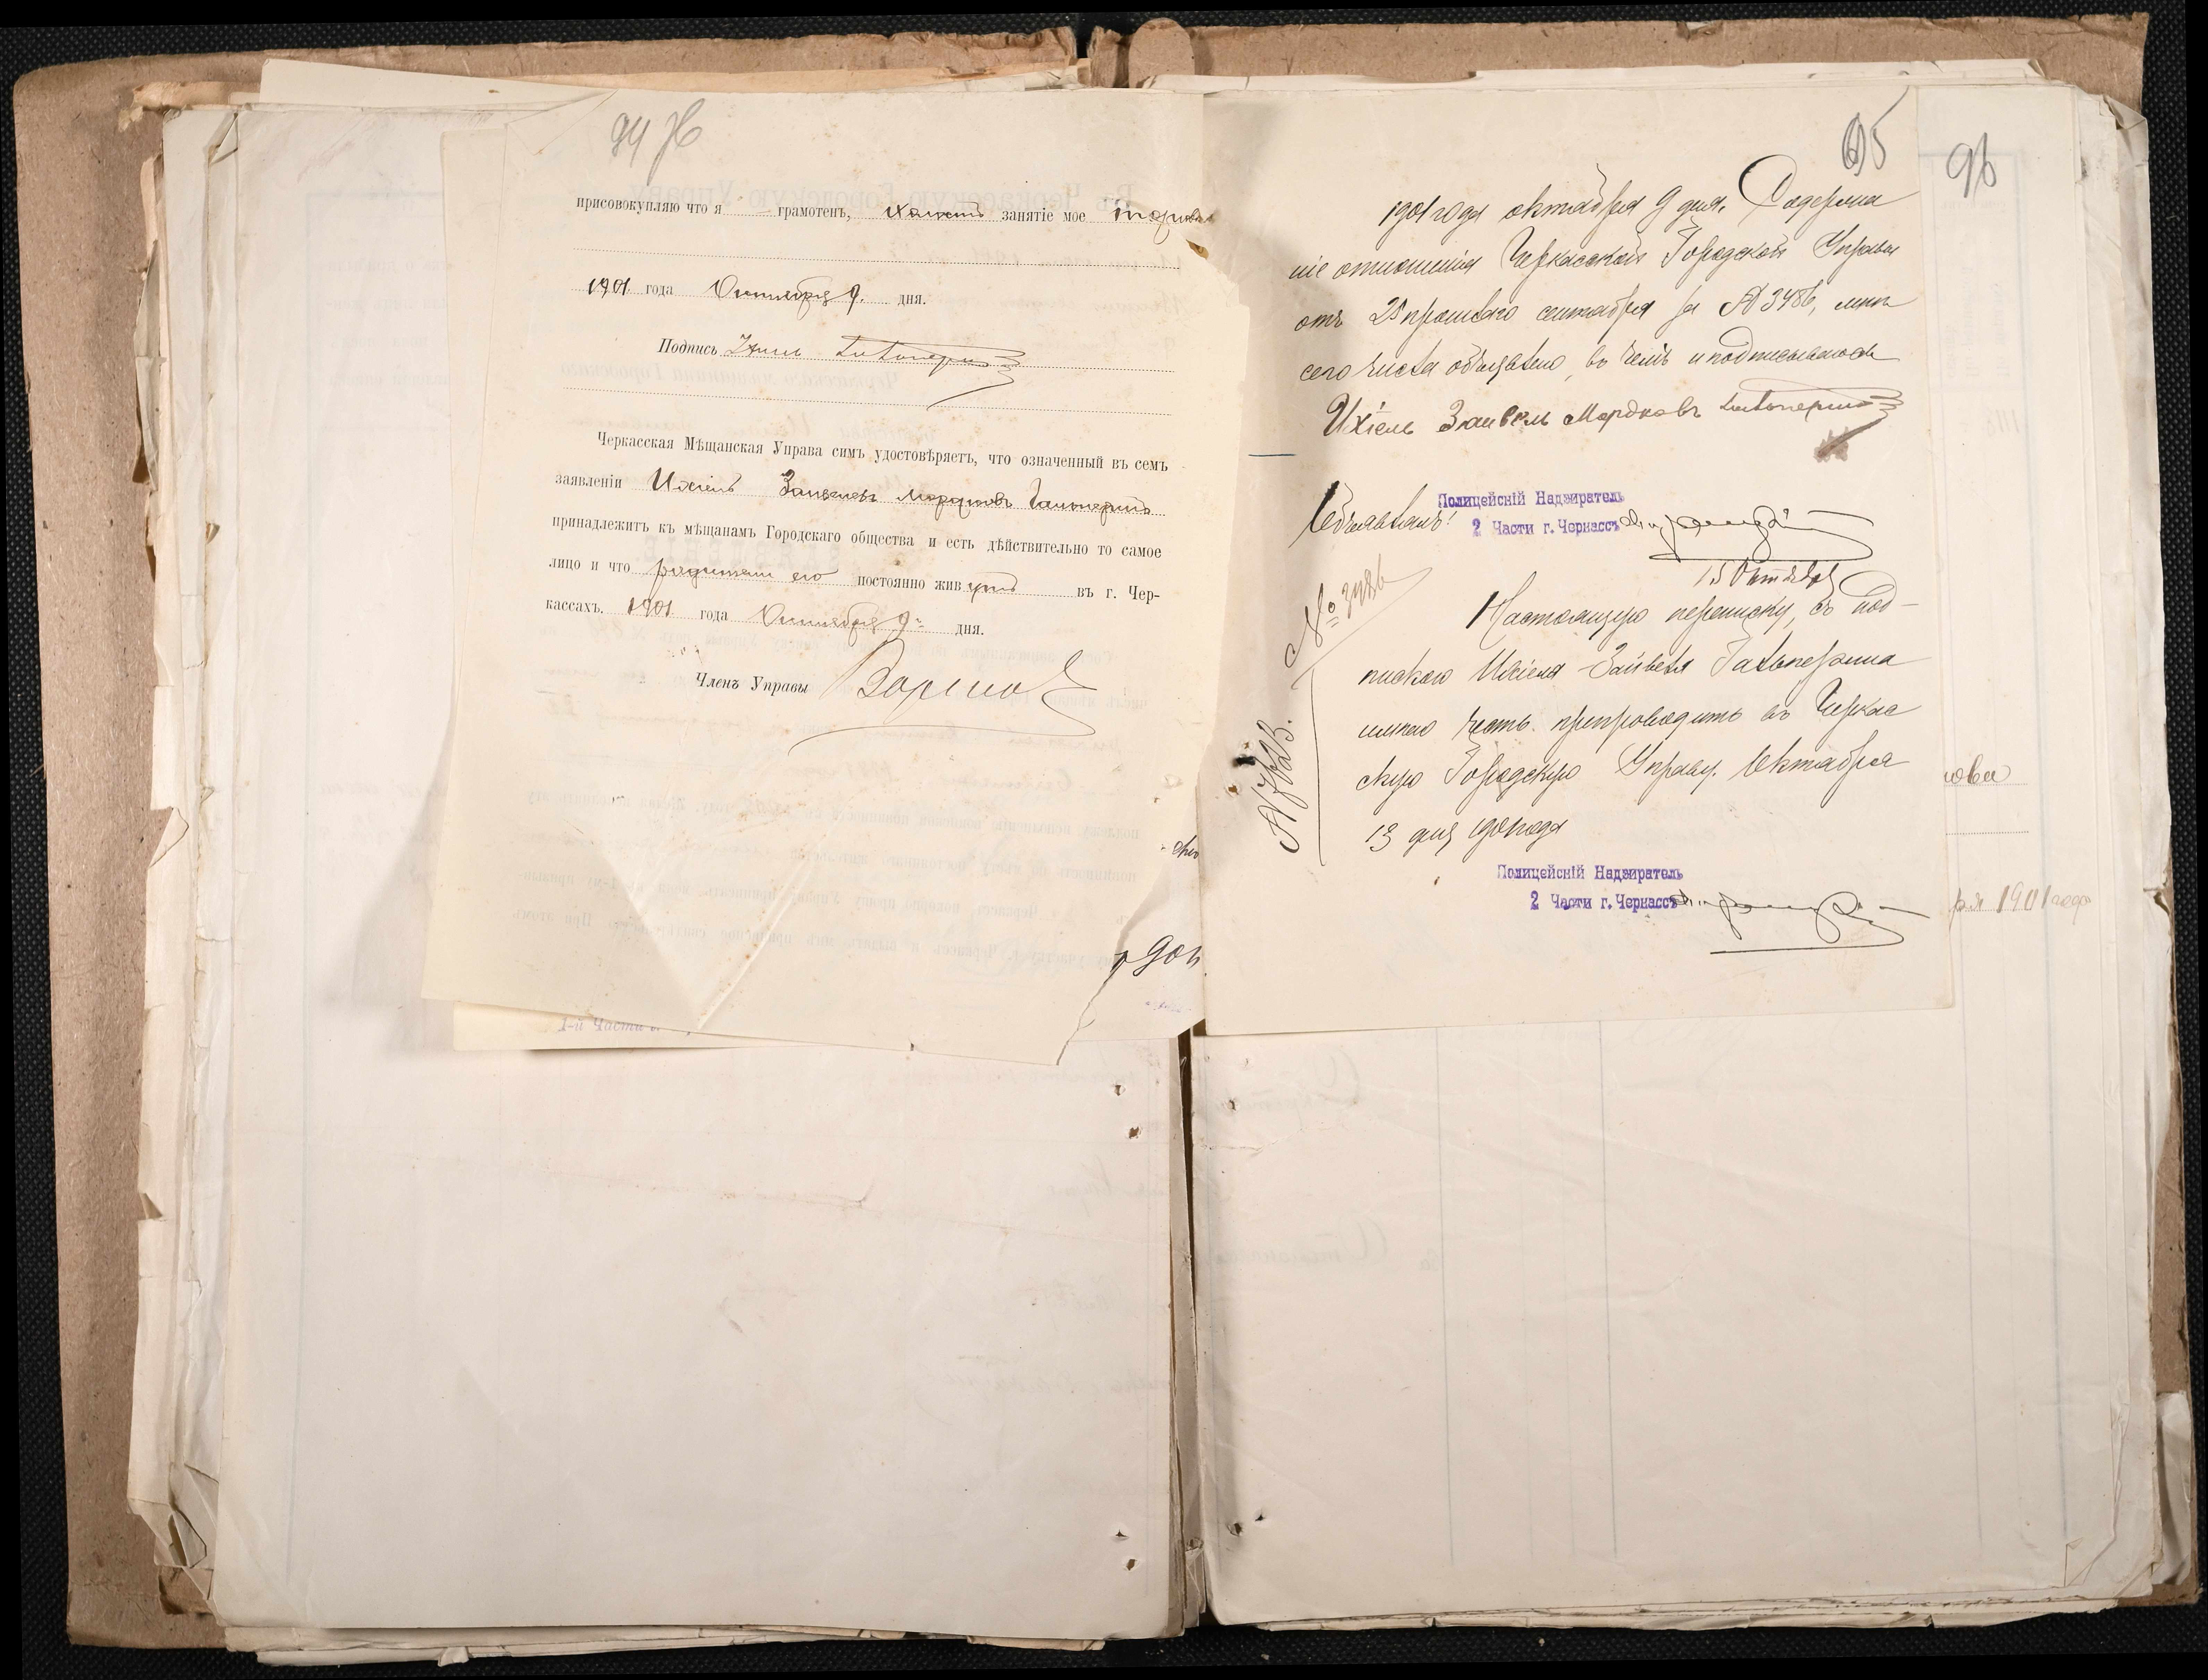 94
присовокупляю что я грамотенъ, холостъ занятіе мое
1901 года Октября 9. дня.
Подпись
Черкасская Мѣщанская Управа симъ удостовѣряетъ, что означенный въ семъ
заявленіи Ихіель Зайвель Мордковъ Гальперинъ
принадлежитъ къ мѣщанамъ Городскаго общества и есть дѣйствительно то самое
лицо и что родители его постоянно живутъ въ г. Чер-
кассахъ. 1901 года Октября 9 дня.
Членъ Управы
1-й Части
95
1901 года октября 9 дня. Содержа
ніе отношенія Черкасской Городской Управы
отъ 25 прошлаго сентября за № 3486, мнѣ
сего числа объявлено, въ чемъ и подписываюсь
Ихіель Зайвель Мордковъ Гальперинъ
Объявилъ:
Полицейскій Надзиратель
2 Части г. Черкассъ
15 Октября
№ 3486
Настоящую переписку, съ под-
пискою Ихіеля Зайвеля Гальперина
имѣю честь препроводить въ Черкас
скую Городскую Управу. Октября
13 дня 1901 года
Полицейскій Надзиратель
2 Части г. Черкассъ
96
ря 1901 года